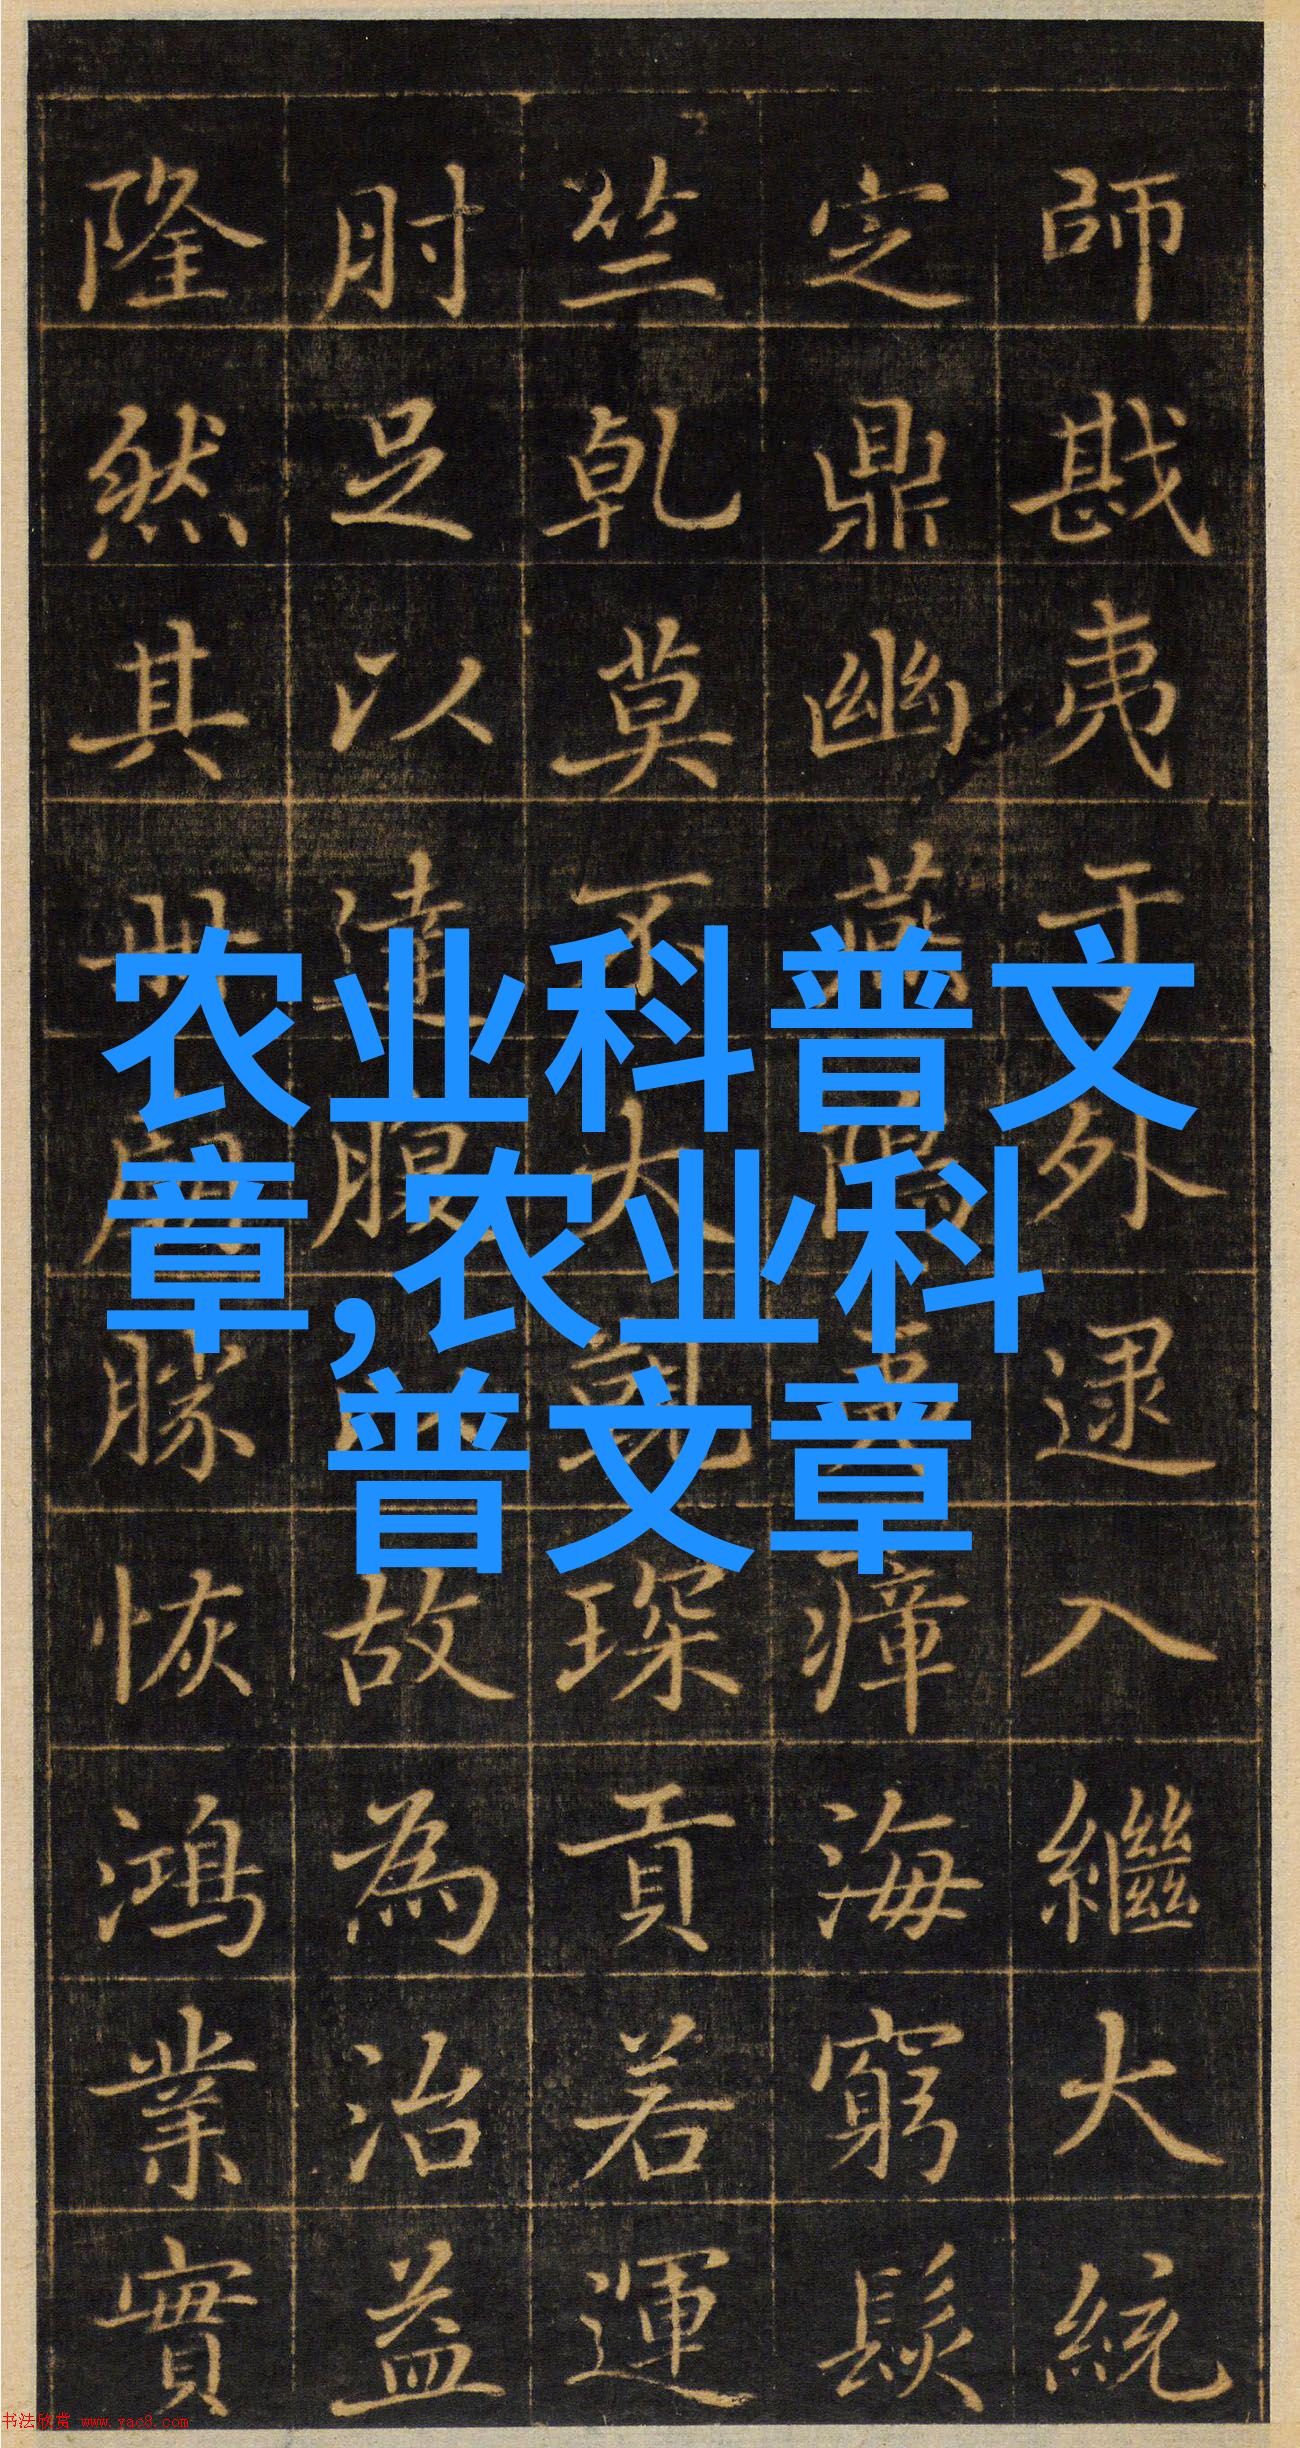 农业科普文
章,农业科
普文章
師戡夷于外逮入繼大統
定鼎幽燕瘴海窮髮
竺乾莫不大琛貢若運
肘足以達腹故為治益
隆然其勝恢鴻業實
书法欣赏 www.yac8.com